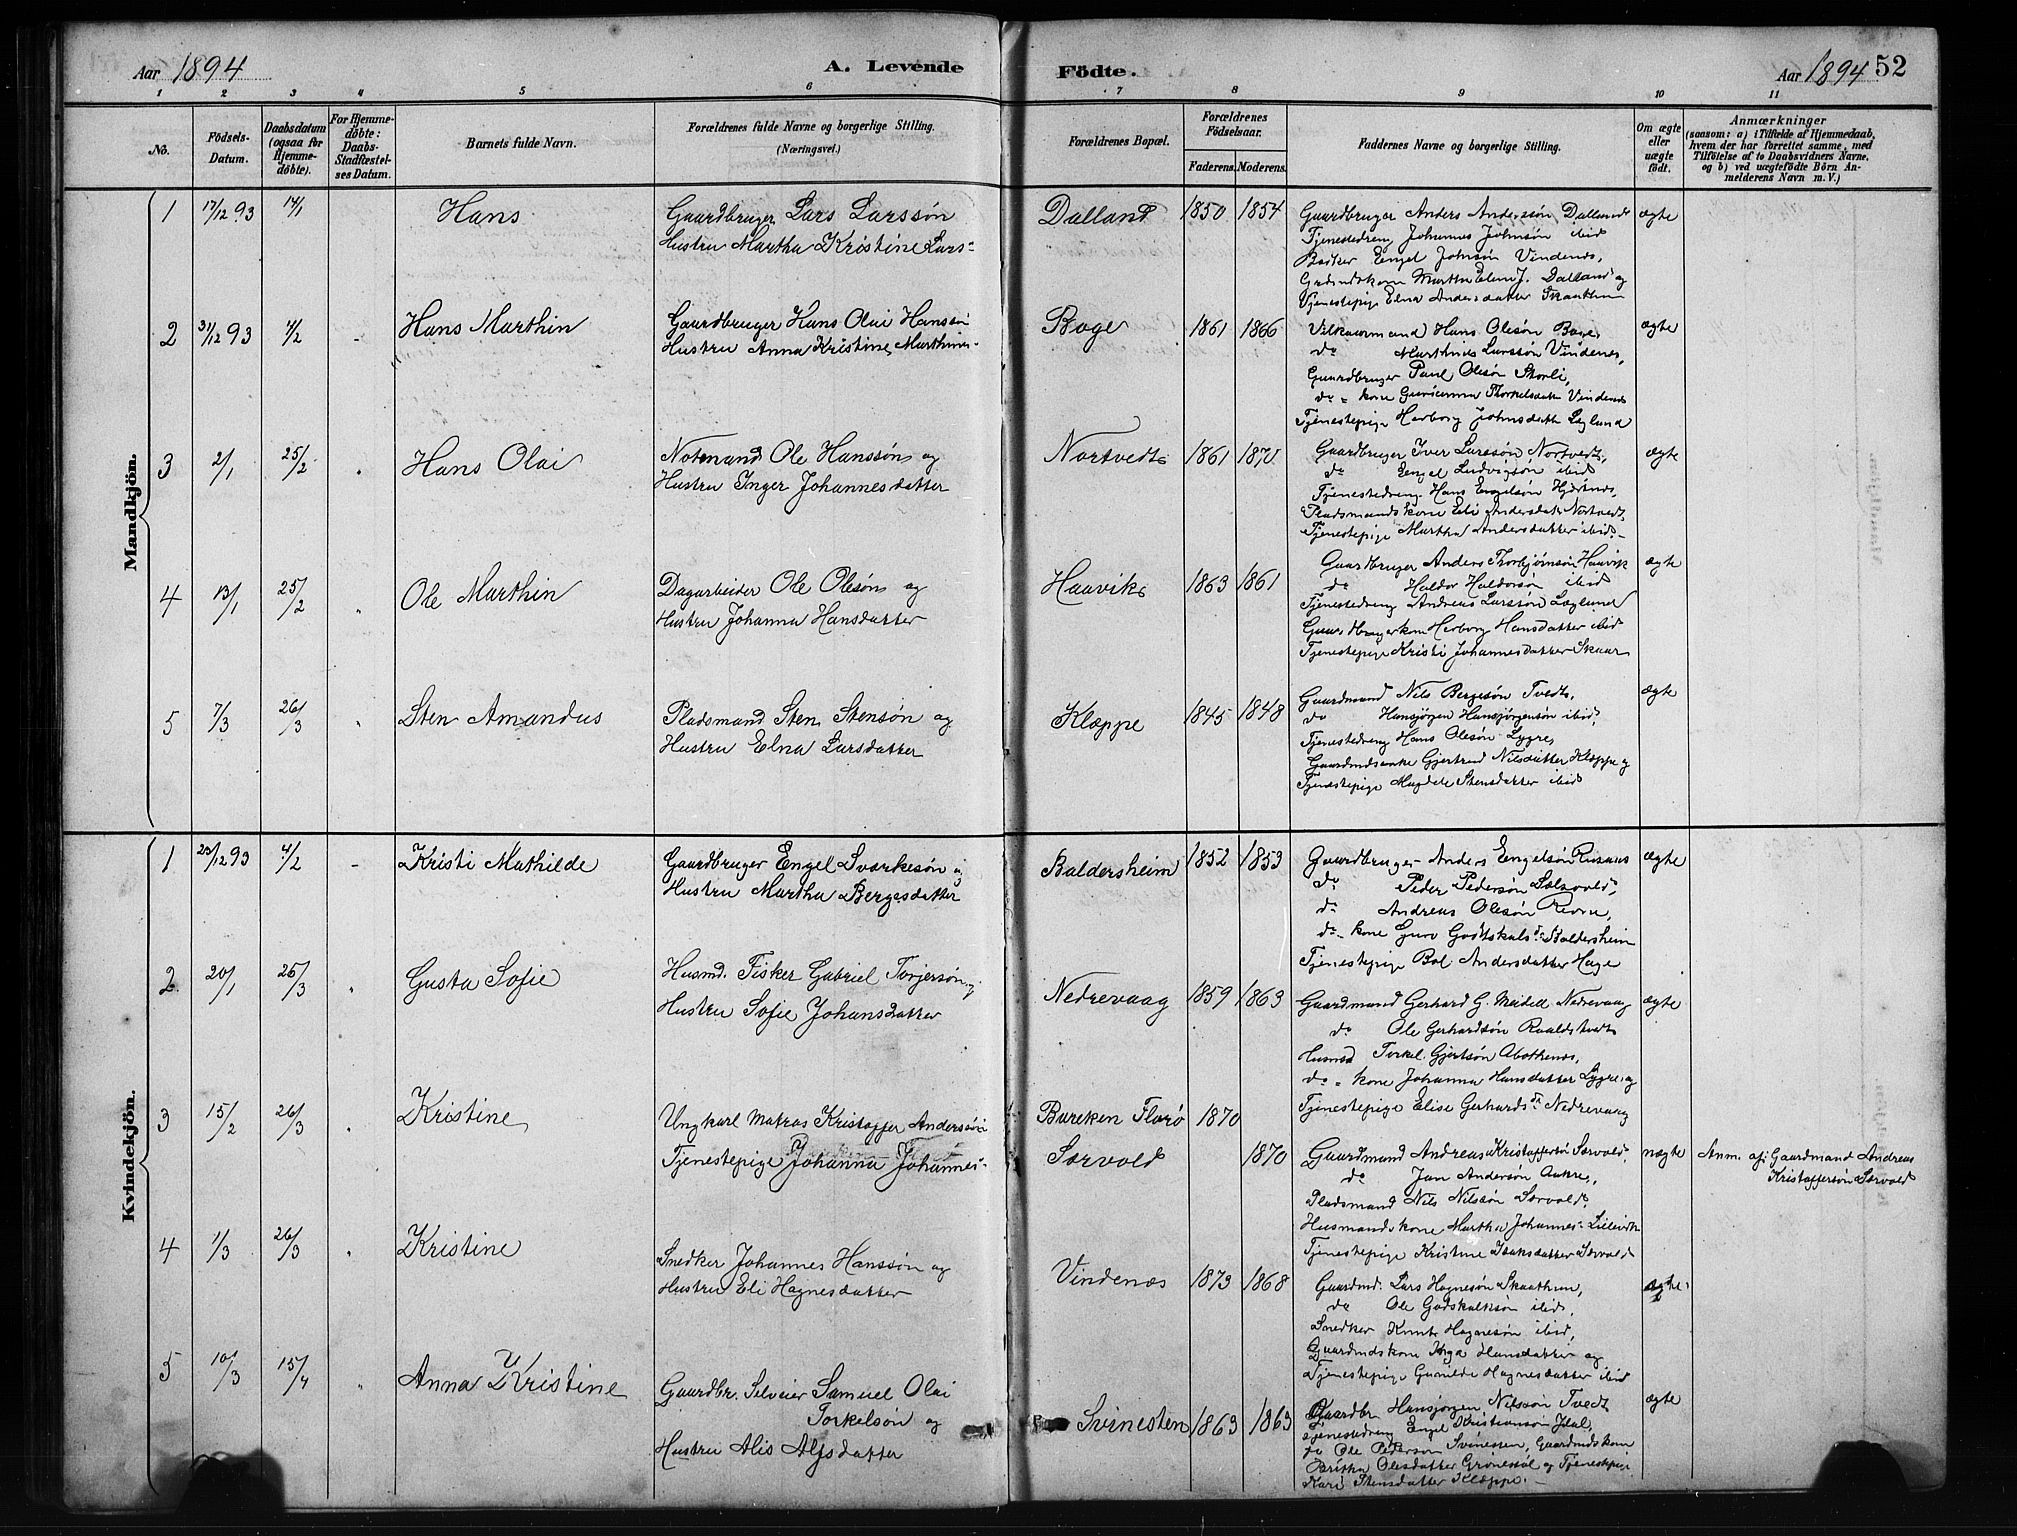 Aar 1894
A. Levende
Födte.
Aar 1894 52
1 2 3 4 5 6 7 8 9 10 11
No.
Födsels-
Datum.
Daabsdatum
(ogsaa for
Hjemme-
döbte).
For Hjemme-
döbte:
Daabs-
Stadfæstel-
ses Datum.
Barnets fulde Navn.
Forældrenes fulde Navne og borgerlige Stilling.
(Næringsvei.)
Forældrenes Bopæl.
Forældrenes
Födselsaar.
Faderens. Moderens.
Faddernes Navne og borgerlige Stilling.
Om ægte
eller
uægte
födt.
Anmærkninger
(saasom: a) i Tilfælde af Hjemmedaab,
hvem der har forrettet samme, med
Tilföielse af to Daabsvidners Navne,
og b) ved uægtefödte Börn An-
melderens Navn m. V.)
Mandkjön.
1 17/12 93 14/1 Hans
Gaardbruger Lars Larssön
Hustru Martha Kristine Lars-
Dalland 1850 1854
Gaardbruger Anders Anderssön Dalland
Tjenestedreng Johannes Johnsön ibid
Bødker Engel Johnsön Vindenes,
Martha Elene J. Dalland og
Tjenestepige Elna Andersdatter Skaathun
ægte
2 31/12 93 4/2 - Hans Marthin
Gaardbruger Hans Olai Hanssön
Hustru Anna Kristine Marthines-
Boge 1861 1866
Vilkaarmand Hans Olesön Boge,
do Marthnis Larssön Vindenes,
Gaardbruger Paul Olesön Storli,
do - kone Thorkelsdatt Vindenes
Tjenestepige Herborg Johnsdatt Lægland
ægte
3 2/1 25/2 Hans Olai
Notmand Ole Hanssön og
Hustru Inger Johannesdatter
Nortvedt 1861 1870
Gaardbruger Iver Larssön Nortvedt,
do Engel Ludvigsön ibid
Tjenestedreng Hans Engelsön Hjertnes,
Pladsmandskone Eli Andersdatt Nortvedt,
Tjenestepige Martha Andersdatter ibid.
ægte
4 13/1 25/2 Ole Marthin
Dagarbeider Ole Olesön og
Hustru Johanna Hansdatter
Haavik 1863 1861
Gaardbruger Anders Thorbjörnsön Haavik
do Haldor Haldorsön ibid
Tjenestedreng Andreas Larssön Lægland
Gaardbrugerkone Herborg Hansdatter ibid
Tjenestepige Kristi Johannesdatter Skaar
ægte
5 7/3 26/3 Sten Amandus
Pladsmand Sten Stensön og
Hustru Elna Larsdatter
Klæppe 1845 1848
Gaardmand Nils Bergesön Tvedt,
do Hansjörgen Hansjörgensön ibid,
Tjenestedreng Hans Olesön Lygre,
Gaardmdsenke Gjertrud Nilsdatter Klæppe og
Tjenestepige Magdele Stensdatter ibid
ægte
Kvindekjön.
1 23/12 93 4/2 - Kristi Mathilde
Gaardbruger Engel Sværkesön og
Hustru Martha Bergesdatter
Baldersheim 1852 1853
Gaardbruger Anders Engelsön
do Peder Pedersön Sælsvold,
do Andreas Olesön Revne,
do - kone Guro Godtskalsdr Baldersheim
Tjenestepige Andersdatter Hage
ægte
2 20/1 25/3 Gusta Sofie
Husmd. Fisker Gabriel Torjersön og
Hustru Sofie Johansdatter
Nedrevaag 1859 1863
Gaardmand Gerhard G. Meidell Nedrevaag
do Ole Gerhardsön Roaldstvedt
Husmd Torkel Gjertsön Abothenes,
do - kone Johanna Hansdatter Lygre og
Tjenestepige Elise Gerhardsdr Nedrevaag
ægte
3 15/2 26/3 Kristine
Ungkarl Matros Kristoffer Anderssön
Tjenestepige Johanna Johannes-
Bureken Florö 1870
Særvold 1870
Gaardmand Andreas Kristoffersön Særvold,
do Jan Andersön Aakre,
Pladsmand Nils Nilssön Særvold,
Husmandskone Martha Johannes- Lillevik
Tjenestepige Kristine Isaksdatter Særvold
uægte
Anm. af: Gaardmand Andreas
Kristoffersön Særvold
4 1/3 26/3 Kristine
Snedker Johannes Hanssön og
Hustru Eli Hagnesdatter
Vindenæs 1873 1868
Gaardmd. Lars Hagnesön Skaathun,
do Ole Godskalksön ibid,
Snedker Knut Hagnesön ibid,
Gaardmdskone Inga Hansdatter og
Tjenestepige Gunilde Hagnesdatter ibid
ægte
5 10/3 15/4 Anna Kristine
Gaardbr. Selveier Samuel Olai
Torkelsön og
Hustru Alis Alfsdatter
Svinesten 1863 1863
Gaardbr. Hansjörgen Nilssön Tvedt,
Tjenestedreng Engel Kristiansön Idal,
do Ole Pedersön Svinesten, Gaardmdskone
Britha Olesdatter Grönestöl og Tjenestepige
Kari Stensdatter Klæppe.
ægte